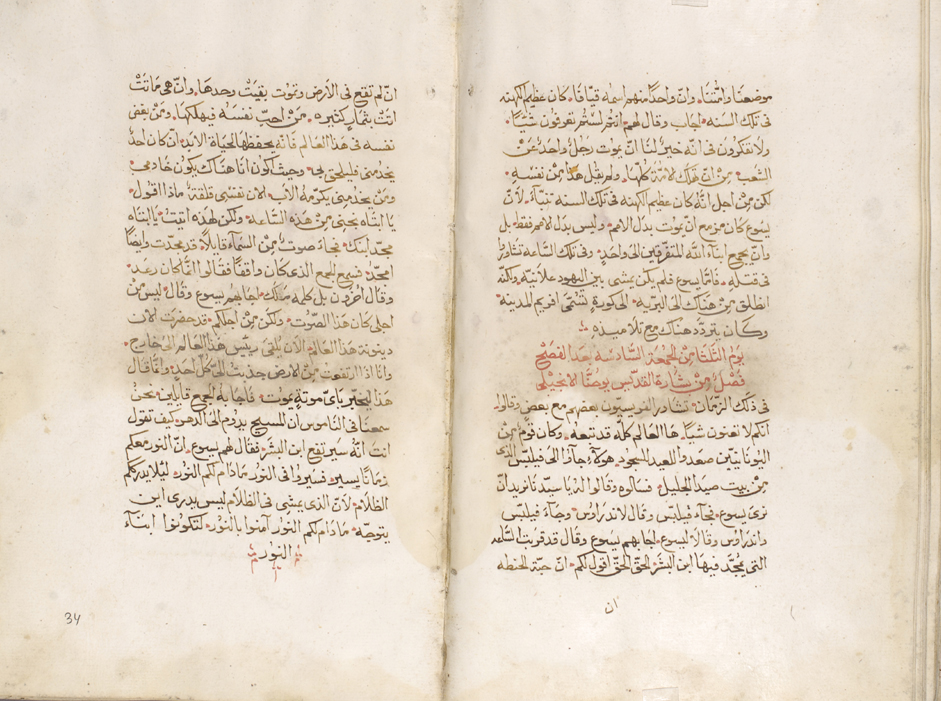 موضعنا وامتنا. وانّ واحداً منهم اسمه قيافا. كان عظيم الكهنه
فى تلك السنه. اجاب وقال لهم انتم لستم تعرفون شيّاً.
ولا تفكرون فى انّه خير لنا ان يموت رجل واحد عن
الشعب. من ان تهلك الامّة كلّها. ولم يقل هذا من نفسه.
لكن من اجل انّه كان عظيم الكهنه فى تلك السنه تنبّأ. لانّ
يسوع كان مزمع ان يموت بدل الامم. وليس بدل الامم فقط بل
وان يجمع ابناء اللّه المتفرقين الى واحد. وفى تلك الساعه تشاوروا
فى قتله. فامّا يسوع فلم يكن يمشى بين اليهود علانيه. ولكنّه
انطلق من هناك الى البريه. الى كورة تسمّى افريم المدينه.
وكان يتردّد هناك مع تلاميذه
يوم الثلثا من الجمعة السّادسه بعد الفصح
فصل من بشارة القديس يوحنّا الانجيلى
فى ذلك الزمان. تشاور الفريسيون بعضهم مع بعض وقالوا
انكم لا تغنون شياً. ها العالم كلّه قد تبعه. وكان قوم من
اليونانيّين صعدوا للعيد للسجود. هولاء جاوا الى فيلبّس الذى
من بيت صيدا الجليل. فسالوه وقالوا له يا سيّد نريد ان
نرى يسوع. فجاء فيلبّس وقال لاندراوس. وجاء فيلبّس
واندراوس وقالا ليسوع. اجابهم يسوع وقال قد قربت الساعه
التى يمجّد فيها ابن البشر. الحقّ الحقّ اقول لكم. انّ حبّة الحنطه
ان
ان لم تقع فى الارض وتموت بقيت وحدها. وان هى ماتت
اتت بثمار كثيره. من احبّ نفسه فيهلكها. ومن بغض
نفسه فى هذا العالم فانّه يحفظها لحياة الابد. ان كان احد
يخدمنى فليلحق بى. وحيث اكون انا هناك يكون خادمى.
ومن يخدمنى يكرّمه الاب. الان نفسى قلقة. ماذا اقول.
يا ابتاه نجنى من هذه السّاعه. ولكن لهذه اتيت. يا ابتاه
مجّد ابنك. فجاء صوت من السماء قايلاً. قد مجّدت وايضاً
امجّد. فسمع الجمع الذى كان واقفاً فقالوا انّما كان رعد.
وقال اخرون بل كلمه ملاك. اجابهم يسوع وقال. ليس من
اجلى كان هذا الصّوت. ولكن من اجلكم. قد حضرت الان
دينونة هذا العالم. الان يلقى رييس هذا العالم الى خارج.
وانا اذا ارتفعت من الارض جذبت الىّ كلّ احد. وانّما قال
هذا ليخبر باىّ موتة يموت. فاجابه الجمع قايلين. نحن
سمعنا فى الناموس ان المسيح يدوم الى الدهر. كيف تقول
انت انّه سيرتفع ابن البشر. فقال لهم يسوع. انّ النور معكم
زماناً يسيرا. فسيروا فى النور. مادام لكم النور. ليلا يدرككم
الظلام. لانّ الذى يمشى فى الظلام ليس يدرى اين
يتوجّه. مادام لكم النور آمنوا بالنور. لتكونوا ابناء
النور
34